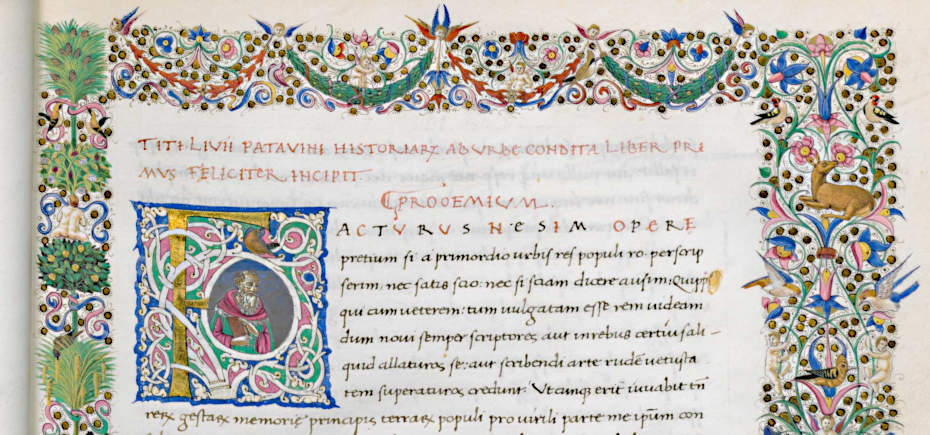 TITI LIVII PATAVINI HISTORIARꝜ AD URBE CONDITA LIBER PRI
MVS FELICITER INCIPIT
PROOEMIUM.
FACTURUS NE SIM OPERE
pretium si a primordio urbis res populi ro. perscrip
serim: nec satis scio: nec si sciam dicere ausim: Quippe
qui cum veterem: tum vulgatam esse rem videam
dum novi semper scriptores, aut in rebus certius ali-
quid allaturos se, aut scribendi arte rudē vetusta
tem superaturos credunt. Utcunq erit iuvabit tñ
rerꝝ gestarꝝ memorię principis terrarꝝ populi pro virili parte me ipsum con